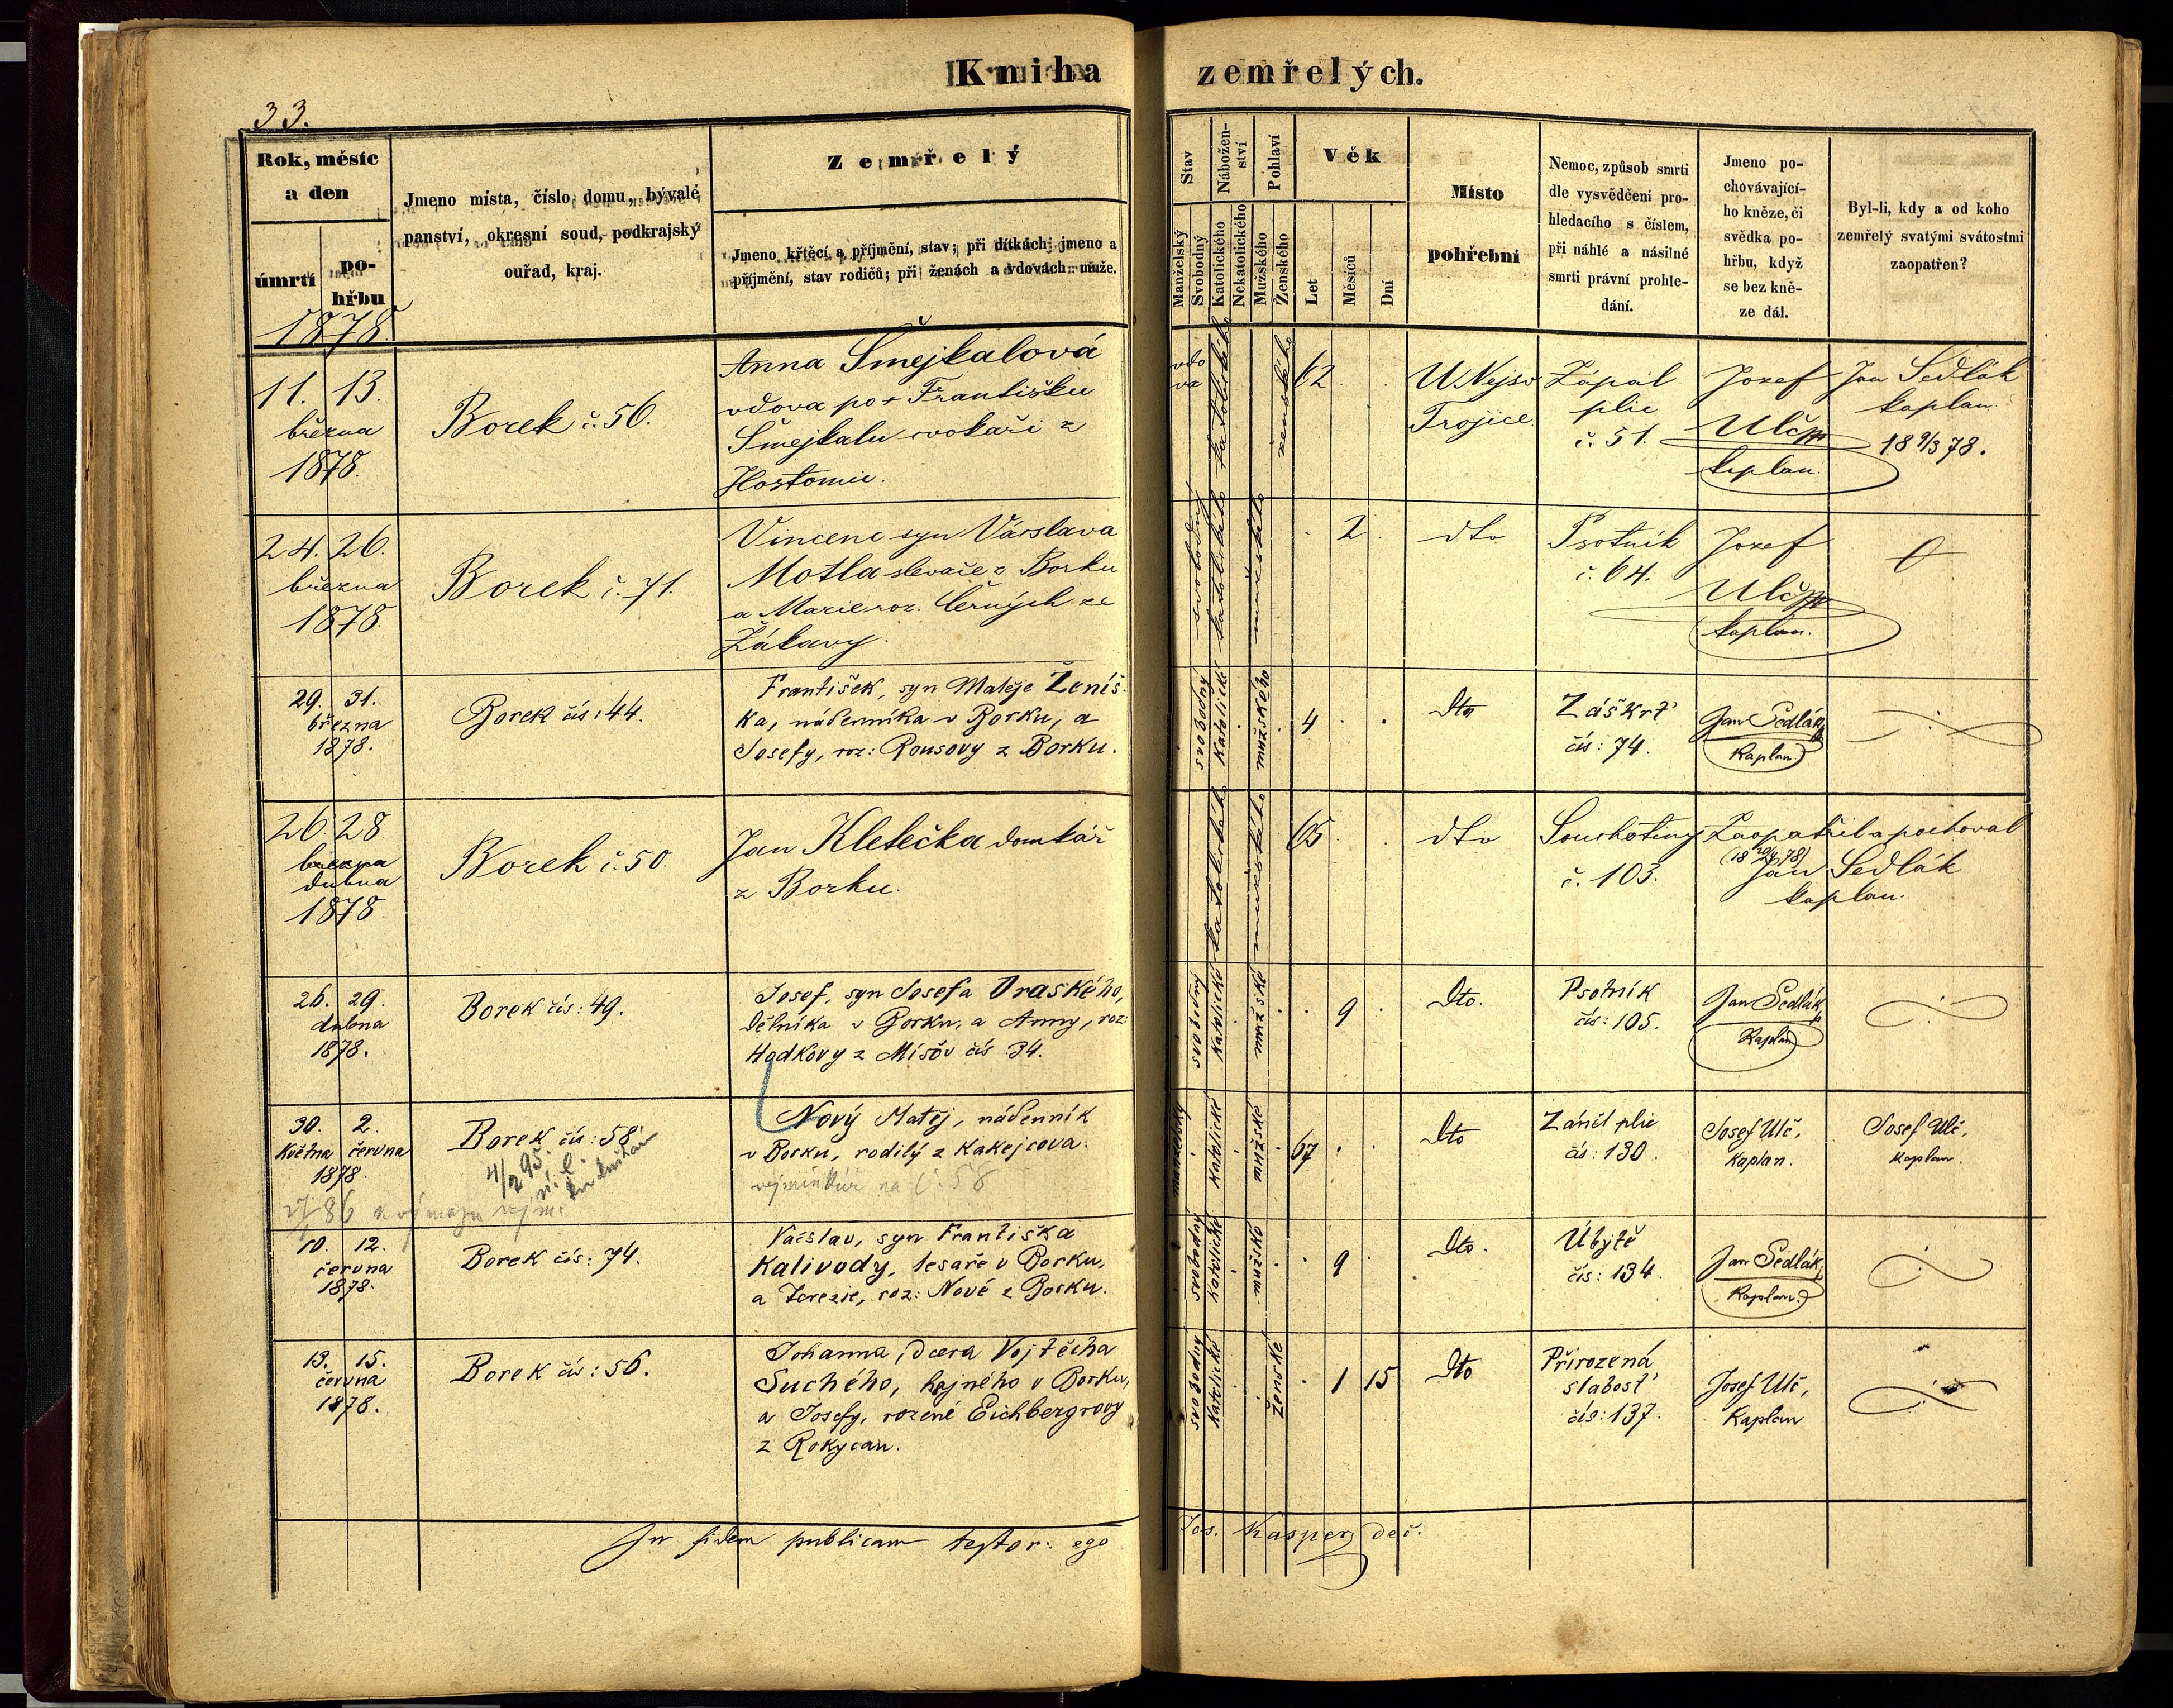 Kniha zemřelých.
33.
Rok, měsíc
a den
úmrtí
po-
hřbu
1878.
Jmeno místa, číslo domu, bývalé
panství, okresní soud, podkrajský
ouřad, kraj.
Zemřelý
Jmeno křtěcí a příjmění, stav; při dítkách jmeno a
příjmění, stav rodičů; při ženách a vdovách muže.
Stav
Manželský
Svobodný
Nábožen-
ství
Katolického
Nekatolického
Pohlaví
Mužského
Ženského
Věk
Let
Měsíců
Dní
Místo
pohřební
Nemoc, způsob smrti
dle vysvědčení pro-
hledacího s číslem,
při náhlé a násilné
smrti právní prohle-
dání.
Jmeno po-
chovávající-
ho kněze, či
svědka po-
hřbu, když
se bez kně-
ze dál.
Byl-li, kdy a od koho
zemřelý svatými svátostmi
zaopatřen?
11. 13.
března
1878.
Borek č. 56.
Anna Šmejkalová
vdova po + Františku
Šmejkalu cvokaři z
Hostomic.
vdo
va
katolického
ženského
62
U Nejsv
Trojice.
Zápal
plic
č. 51.
Jozef
Ulč
kaplan.
Jan Sedlák
kaplan.
18 9/3 78.
24. 26.
března
1878.
Borek č. 71.
Vincenc syn Václava
Motla slevače z Borku
a Marie roz. Černých ze
Žákavy.
svobodný
katolického
mužského
2
dto
Psotník
č. 64.
Jozef
Ulč
kaplan.
29. 31.
března
1878.
Borek čís: 44.
František, syn Matěje Ženíš-
ka, nádenníka v Borku, a
Josefy, roz: Rousovy z Borku.
svobodný
katolické
mužského
4
dto
Záškrt
čís: 74.
Jan Sedlák,
kaplan.
26. 28
března
dubna
1878.
Borek č. 50.
Jan Kletečka domkář
z Borku.
katolického
mužského
65
dto
Souchotiny
č. 103.
Zaopatřil a pochoval
Jan Sedlák
kaplan.
26. 29.
dubna
1878.
Borek čís: 49.
Josef, syn Josefa Draského,
dělníka v Borku, a Anny, roz:
Hodkovy z Mišův čís 34.
svobodný
katolické
mužské
9
dto.
Psotník
čís: 105.
Jan Sedlák,
Kaplan
30. 2.
května června
1878.
Borek čís: 58.
4/2 95.
Nový Matěj, nádenník
v Borku, rodilý z Kakejcova.
výminkář na č. 58
manželský
katolické
mužské
67
dto
Zánět plic
čís: 130.
Josef Ulč,
kaplan.
Josef Ulč,
kaplan.
10. 12.
června
1878.
Borek čís: 74.
Václav, syn Františka
Kalivody, tesaře v Borku,
a Terezie, roz: Nové z Borku.
svobodný
katolické
mužské
9
dto.
Úbytě
čís: 134.
Jan Sedlák,
kaplan.
13. 15.
června
1878.
Borek čís: 56.
Johanna, dcera Vojtěcha
Suchého, hajného v Borku,
a Josefy, rozené Eichbergrovy
z Rokycan.
svobodný
katolické
ženské
1 15
dto
Přirozená
slabost
čís: 137.
Josef Ulč,
kaplan
In fidem publicam testor: ego Jos. Kasper děč.